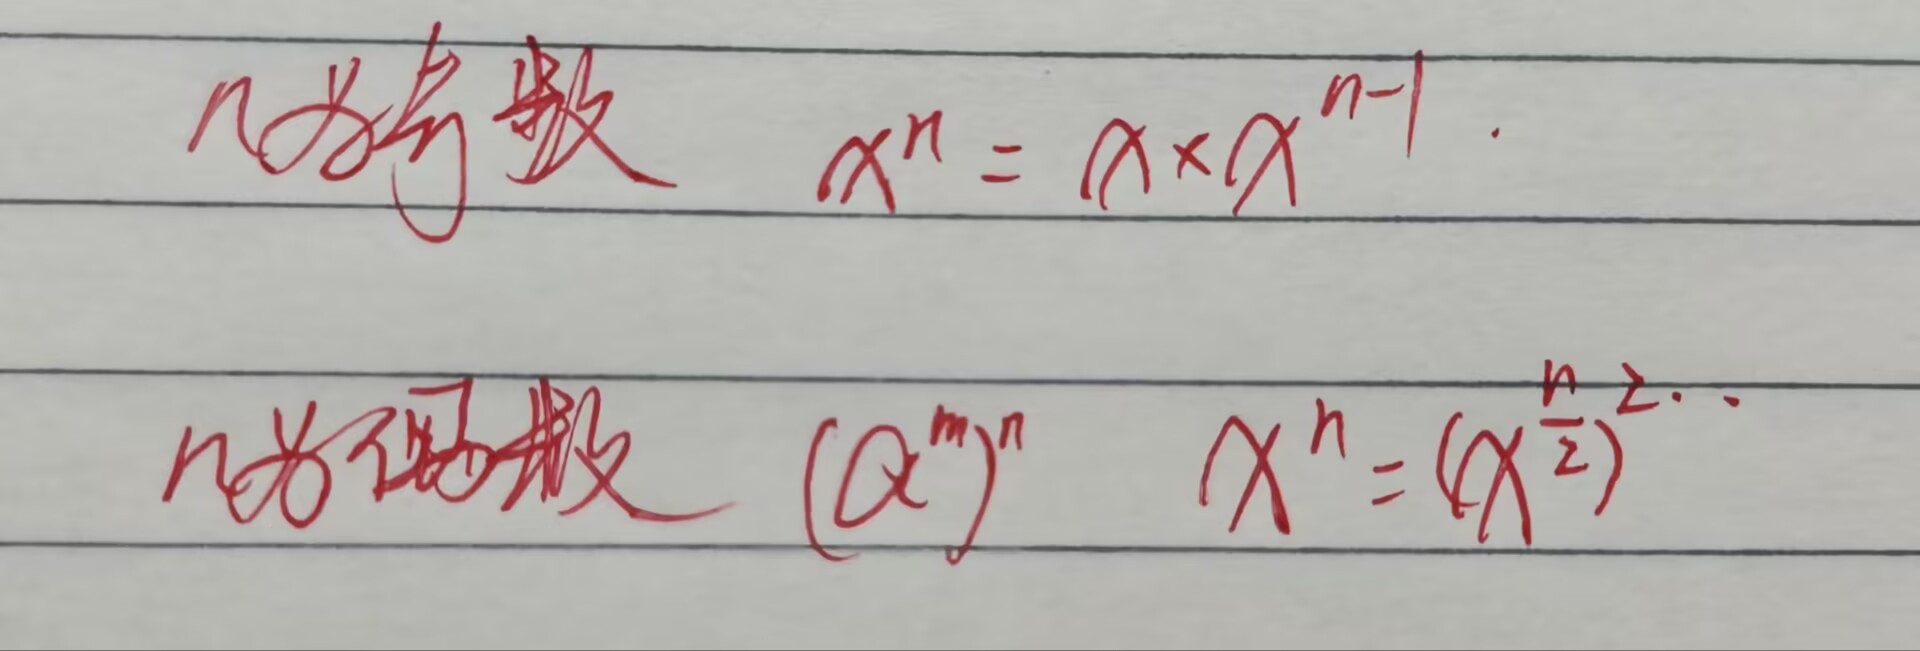 n为奇数 x^n = x × x^{n-1}.
n为偶数 (a^m)^n x^n = (x^{\frac{n}{2}})^2...